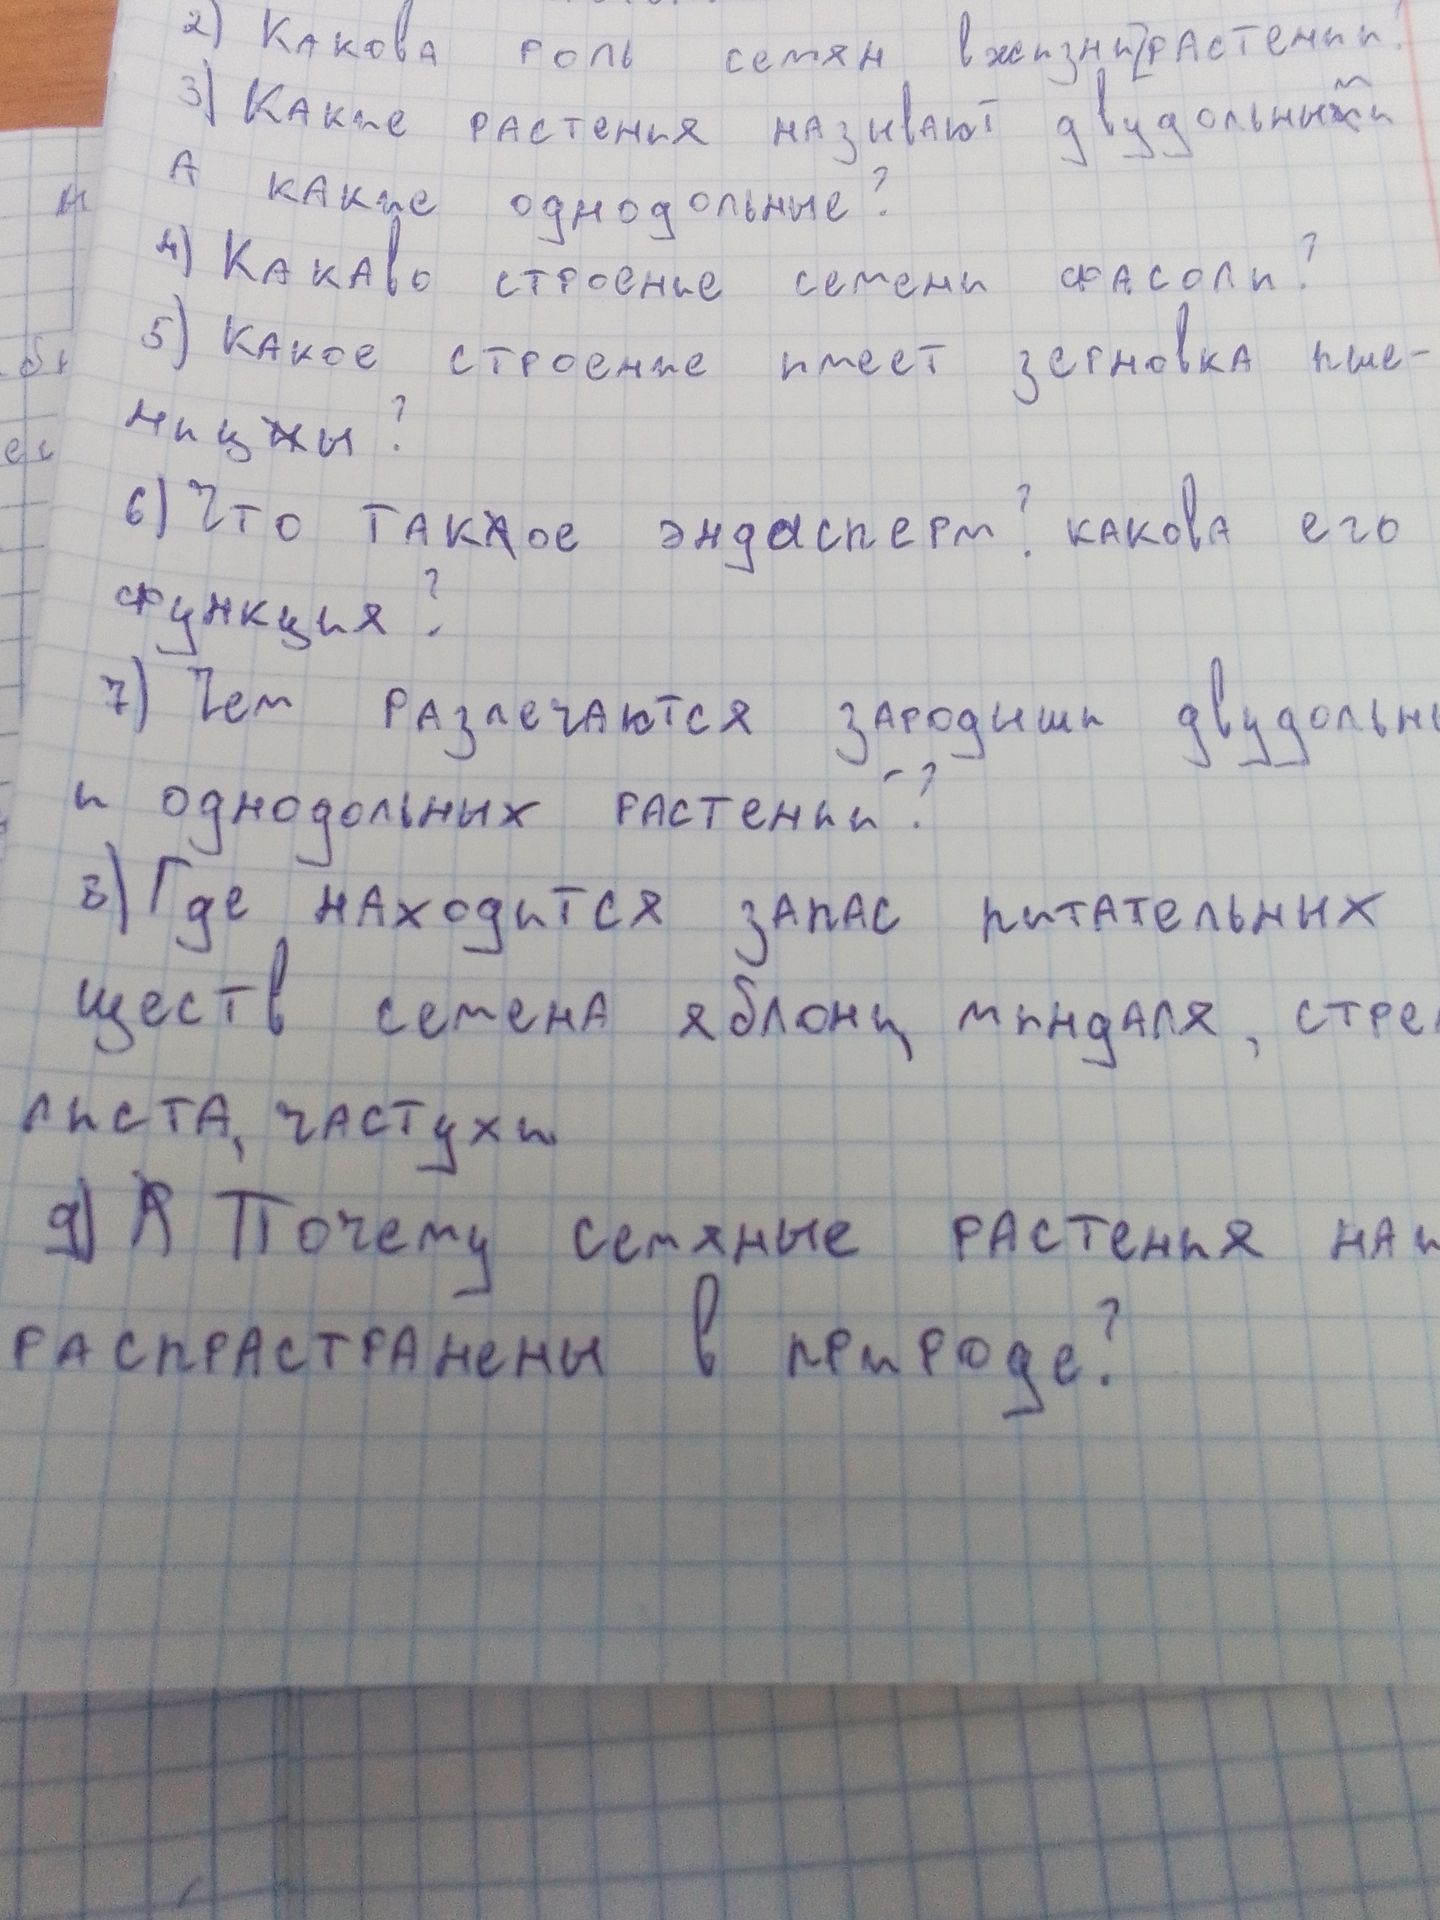 2) Какова роль семян в жизни растений?
3) Какие растения называют двудольными
А какие однодольные?
4) Какаво строение семени фасоли?
5) Какое строение имеет зерновка пше-
ницы?
6) Что такое эндасперм? какова его
функция?
7) Чем разлечаются зародыши двудольны
и однодольных растений?
8) Где находится запас питательных
ществ семена яблони, миндаля, стрел
листа, частухи
9) Почему семяные растения наи
распрастранены в природе?